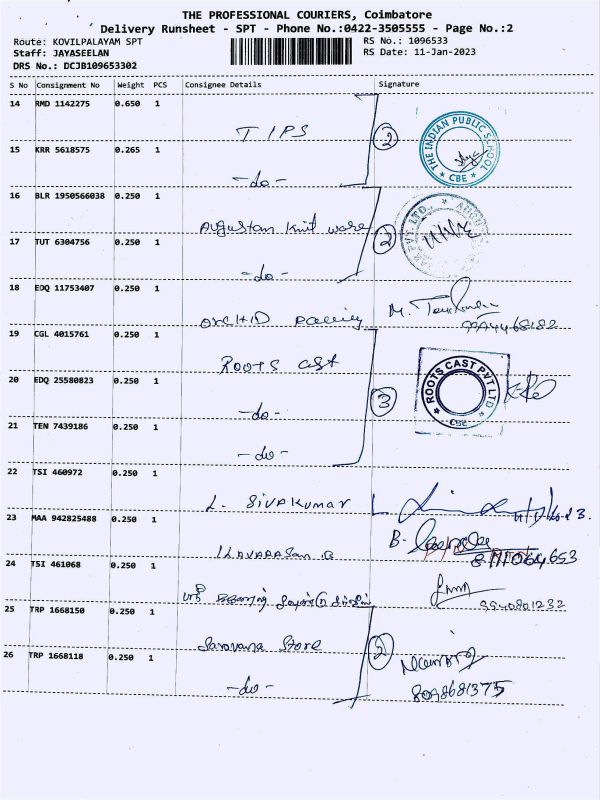 THE PROFESSIONAL COURIERS, Coimbatore
Delivery Runsheet - SPT - Phone No.:0422-3505555 - Page No.:2
Route: KOVILPALAYAM SPT
RS No.: 1096533
Staff: JAYASEELAN
RS Date: 11-Jan-2023
DRS No.: DCJB109653302
S No Consignment No Weight PCS Consignee Details Signature
14 RMD 1142275 0.650 1
TIPS
2
THE INDIAN PUBLIC SCHOOL
* CBE *
15 KRR 5618575 0.265 1
-do-
16 BLR 1950566038 0.250 1
Augustan knit ware
2
17 TUT 6304756 0.250 1
-do-
18 EDQ 11753407 0.250 1
ORCHID
M.
19 CGL 4015761 0.250 1
ROOTS cast
3
ROOTS CAST PVT LTD
* CBE *
20 EDQ 25580823 0.250 1
-do-
21 TEN 7439186 0.250 1
-do-
22 TSI 460972 0.250 1
L. SIVAKUMAR
23 MAA 942825488 0.250 1
ILAVARASAN G
B.
24 TSI 461068 0.250 1
9940801232
25 TRP 1668150 0.250 1
Saravana Store
2
26 TRP 1668118 0.250 1
-do-
8098681375